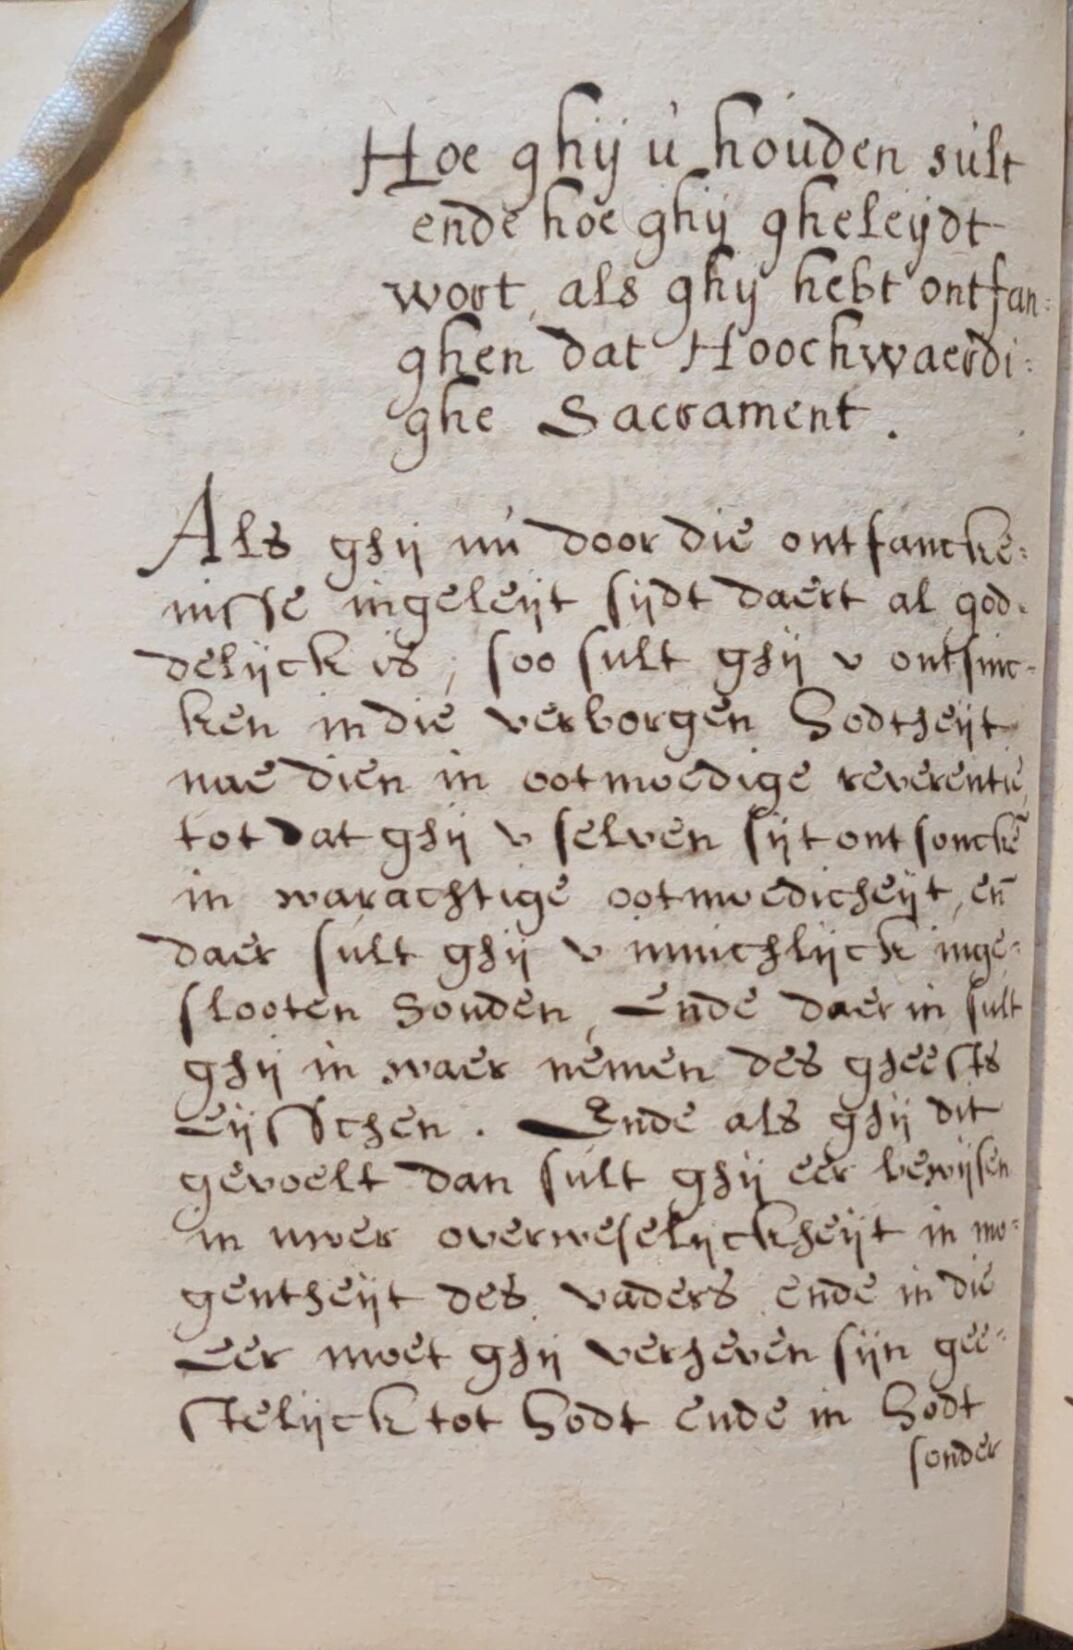 Hoe ghij ú houden súlt
ende hoe ghij gheleijdt
wort, als ghij hebt ontfan:
ghen dat Hoochwaerdi:
ghe Sacrament.
Als ghij nú door die ontfancke:
nisse ingeleijt sijdt daert al god:
delijck is, soo sult ghij v ontsinc-
ken in die verborgen Godtheijt
nae dien in ootmoedige reverentie,
tot dat ghij v selven sijt ontsonckē
in warachtige ootmoedicheijt, en̄
daer sult ghij v innichlijck inge:
slooten houden, Ende daer in sult
ghij in waer nemen des gheests
Eijsschen. Ende als ghij dit
gevoelt dan sult ghij eer bewijsen
in uwer overweselijckheijt in mo:
gentheijt des vaders ende in die
Eer moet ghij verheven sijn gee:
stelijck tot Godt ende in Godt
sonder